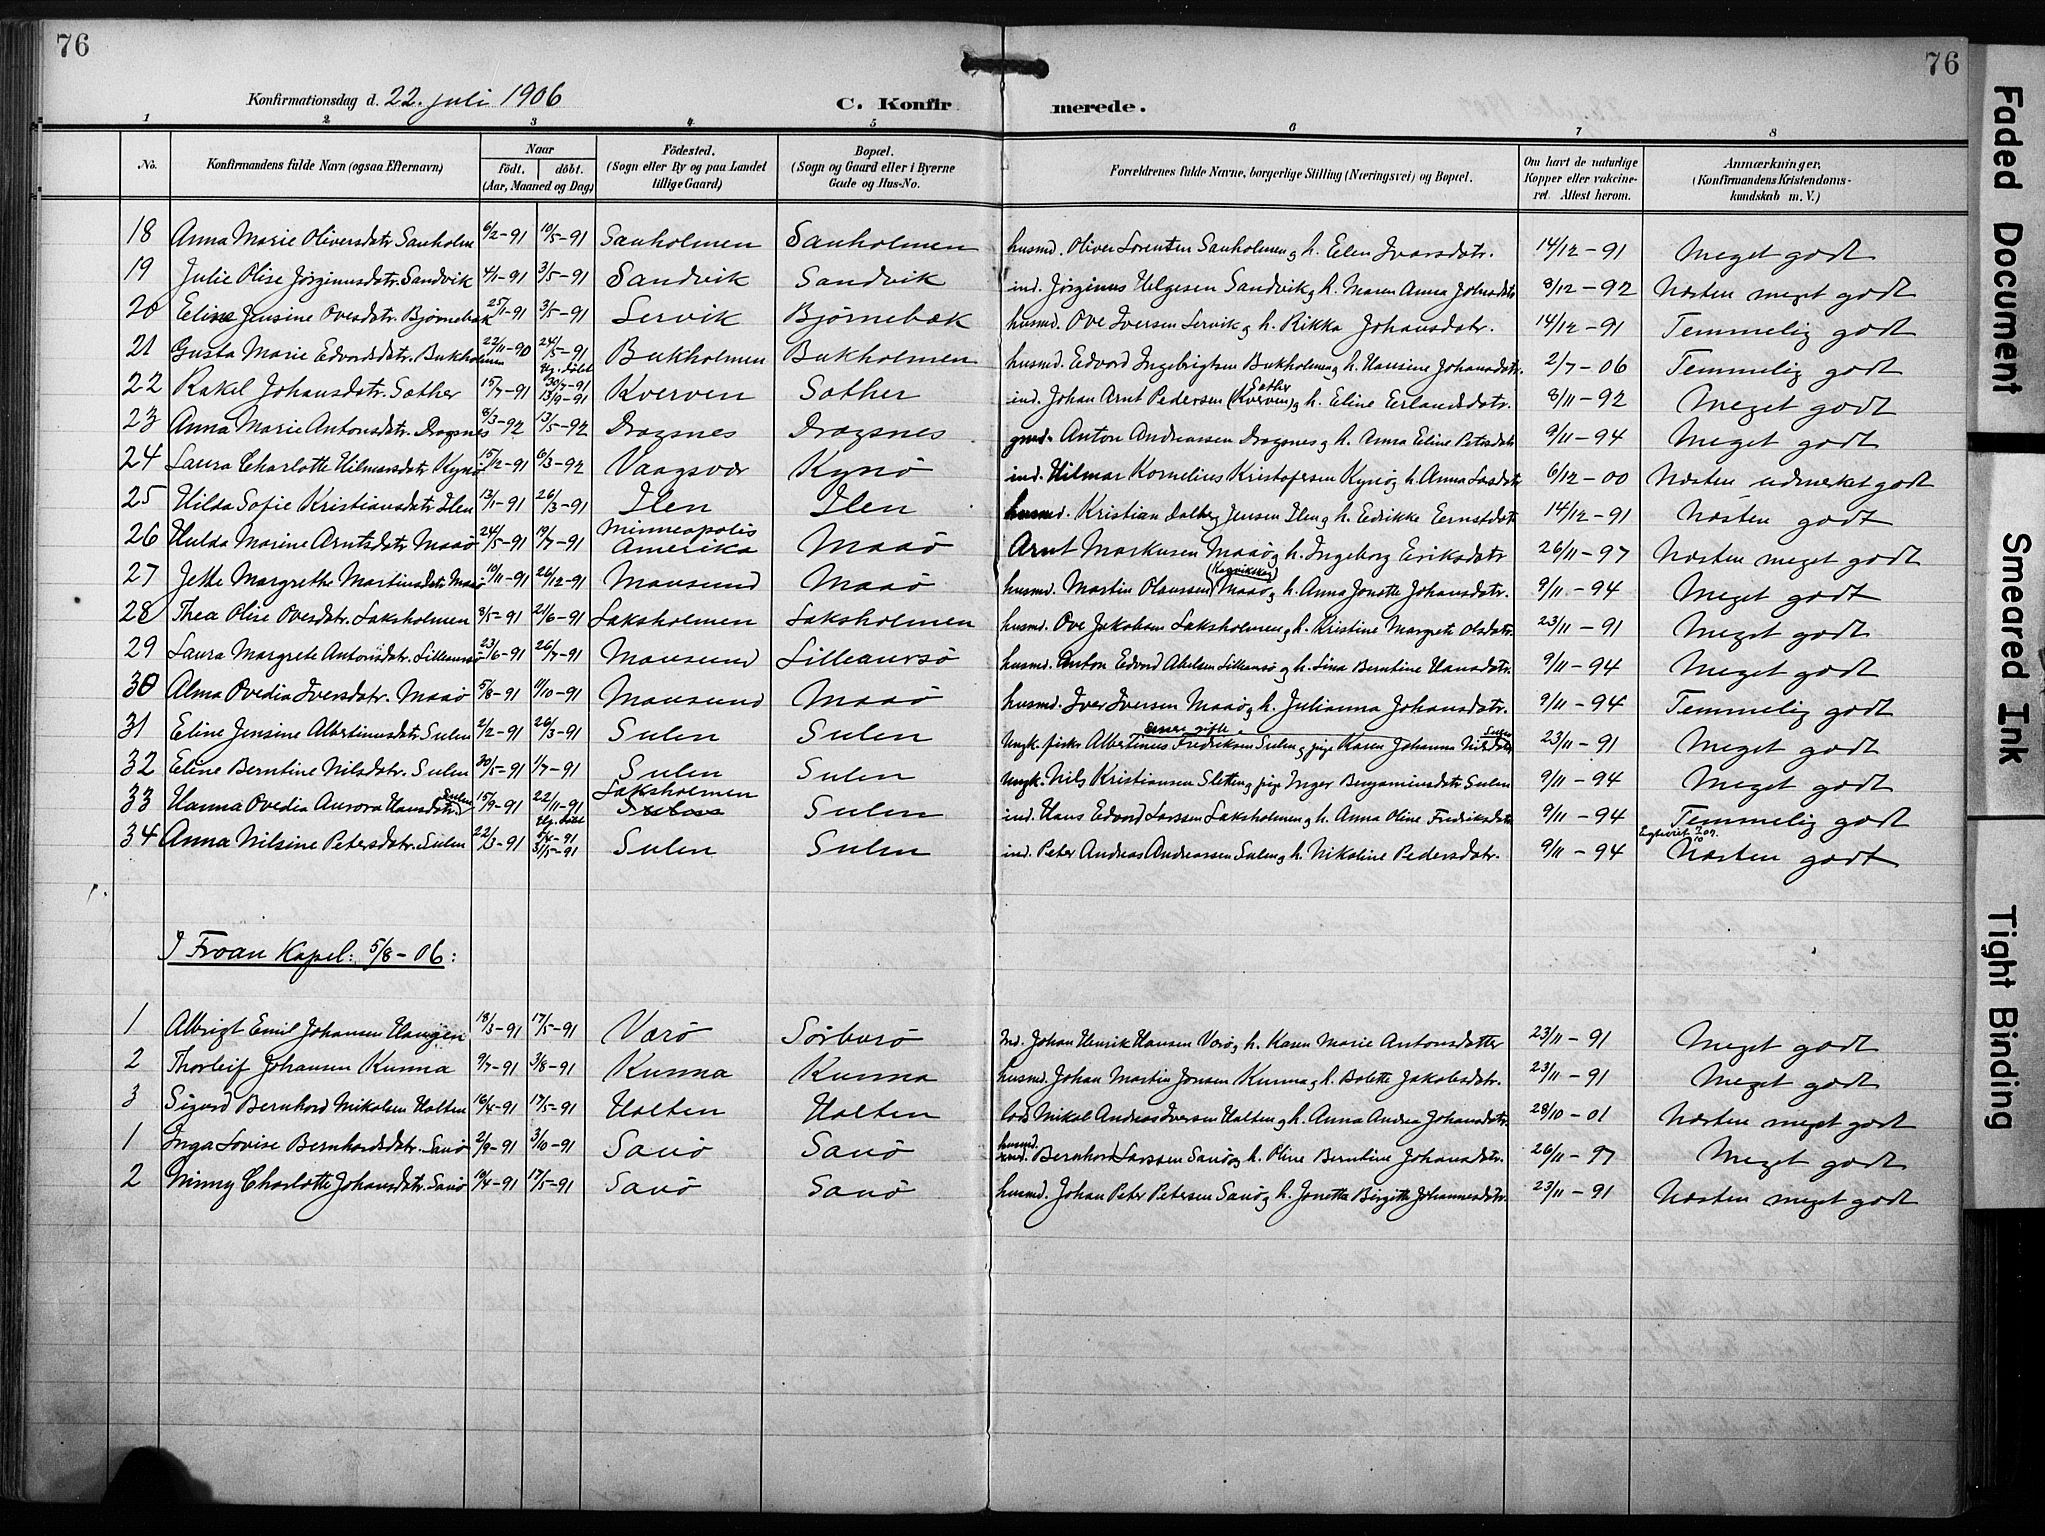 76
76
Konfirmationsdag d. 22. juli 1906
C. Konfirmerede.
1 2 3 4 5 6 7 8
No. Konfirmandens fulde Navn (ogsaa Efternavn) Naar født. døbt. (Aar, Maaned og Dag) Födested. (Sogn eller By og paa Landet tillige Gaard) Bopæl. (Sogn og Gaard eller i Byerne Gade og Hus-No. Forældrenes fulde Navne, borgerlige Stilling (Næringsvei) og Bopæl. Om havt de naturlige Kopper eller vakcineret. Attest herom. Anmærkninger. (Konfirmandens Kristendomskundskab m. V.)
18 Anna Marie Oliversdatr. Sanholm 6/2-91 10/5-91 Sanholmen Sanholmen husmd. Oliver Lorentsen Sanholmen og h. Elen Ivarsdatr. 14/12-91 Meget godt
19 Julie Olise Jørginusdatr. Sandvik 4/1-91 3/5-91 Sandvik Sandvik ind. Jørginus Helgesen Sandvik og h. Maren Anna Johnsdatr 8/12-92 Næsten meget godt
20 Eline Jensine Ovesdatr. Bjørnebæk 25/1-91 3/5-91 Lervik Bjørnebæk husmd. Ove Iversen Lervik og h. Rikka Johansdatr. 14/12-91 Temmelig godt
21 Gusta Marie Edvardsdatr. Bukholmen 22/11-90 24/5-91 Bukholmen Bukholmen husmd. Edvard Ingebrigtsen Bukholmen og h. Hansine Johansdatr. 2/7-06 Temmelig godt
22 Rakel Johansdatr. Sæther 15/7-91 Hj. døbt 30/7-91 13/9-91 Kverven Sæther ind. Johan Arnt Pedersen Sæther (Kverven) og h. Eline Erlandsdatr. 8/11-92 Meget godt
23 Anna Marie Antonsdatr. Dragsnes 8/3-92 13/5-92 Dragsnes Dragsnes gmd. Anton Andreassen Dragsnes og h. Anna Eline Petersdatr 9/11-94 Meget godt
24 Laura Charlotte Hilmarsdatr. Kynø 15/12-91 6/3-92 Vaagsvær Kynø ind. Hilmar Kornelius Kristofersen Kynø og h. Anna Larsdatr 6/12-00 Næsten udmerket godt
25 Hilda Sofie Kristiansdatr. Ilen 13/1-91 26/3-91 Ilen Ilen husmd. Kristian Dalberg Jensen Ilen og h. Edrikke Ernstdatr 14/12-91 Næsten godt
26 Hulda Marine Arntsdatr. Maaø 24/5-91 19/7-91 Minneapolis Amerika Maaø Arnt Markusen Maaø og h. Ingeborg Eriksdatr 26/11-97 Næsten meget godt
27 Jette Margrethe Martinsdatr. Maaø 10/11-91 26/12-91 Mausund Maaø husmd. Martin Olaussen Maaø og h. Anna Jonette Johansdatr. 9/11-94 Meget godt
28 Thea Olise Ovesdatr. Laksholmen 8/5-91 21/6-91 Laksholmen Laksholmen husmd. Ove Jakobsen Laksholmen og h. Kristine Margrete Olsdatr. 23/11-91 Meget godt
29 Laura Margrete Antonsdatr. Lilleaursø 23/6-91 26/7-91 Mausund Lilleaursø husmd. Anton Edvard Abelsen Lilleaursø og h. Lina Berntine Hansdatr. 9/11-94 Meget godt
30 Alma Ovedia Iversdatr. Maaø 5/8-91 11/10-91 Mausund Maaø husmd. Iver Iversen Maaø og h. Julianna Johansdatr. 9/11-94 Temmelig godt
31 Eline Jensine Albertinusdatr. Sulen 2/2-91 26/3-91 Sulen Sulen senere gifte Ungk. fisker Albertinus Fredriksen Sulen og pige Karen Johanna Nilsdatr Sulen 23/11-91 Meget godt
32 Eline Berntine Nilsdatr. Sulen 30/5-91 1/7-91 Sulen Sulen Ungk. Nils Kristiansen Sletten og pige Inger Benjaminsdatr Sulen 9/11-94 Meget godt
33 Hanna Ovedia Aurora Hansdatr. Sulen 15/9-91 22/11-91 Laksholmen Sulen Sulen ind. Hans Edvard Larssen Laksholmen og h. Anna Oline Fredriksdatr 9/11-94 Temmelig godt
34 Anna Nilsine Petersdatr. Sulen 22/3-91 Hj. døbt 31/5-91 Sulen Sulen ind. Peter Andreas Andreassen Sulen og h. Nikoline Pedersdatr. 9/11-94 Næsten godt
I Froan Kapel: 5/8-06:
1 Albrigt Emil Johansen 18/3-91 17/5-91 Værø Sørburø Ind. Johan Henrik Hansen Værø og h. Karen Marie Antonsdatter 23/11-91 Meget godt
2 Thorleif Johansen Kunna 9/7-91 3/8-91 Kunna Kunna husmd. Johan Martin Jonsen Kunna og h. Bolette Jakobsdatr. 23/11-91 Meget godt
3 Sigurd Bernhard Nikolesen Halten 16/4-91 17/5-91 Halten Halten Nikol Andreas Iversen Halten og h. Anna Andrea Johansdatr. 28/10-01 Næsten meget godt
1 Inga Lovise Bernhardsdatr. Sauø 2/9-91 3/10-91 Sauø Sauø husmd. Bernhard Larssen Sauø og h. Oline Berntine Johansdatr. 26/11-97 Meget godt
2 Minny Charlotte Johansdatr. Sauø 14/4-91 17/5-91 Sauø Sauø husmd. Johan Peter Petersen Sauø og h. Jonetta Birgitte Johannesdatr. 23/11-91 Næsten meget godt
Faded Document
Smeared Ink
Tight Binding